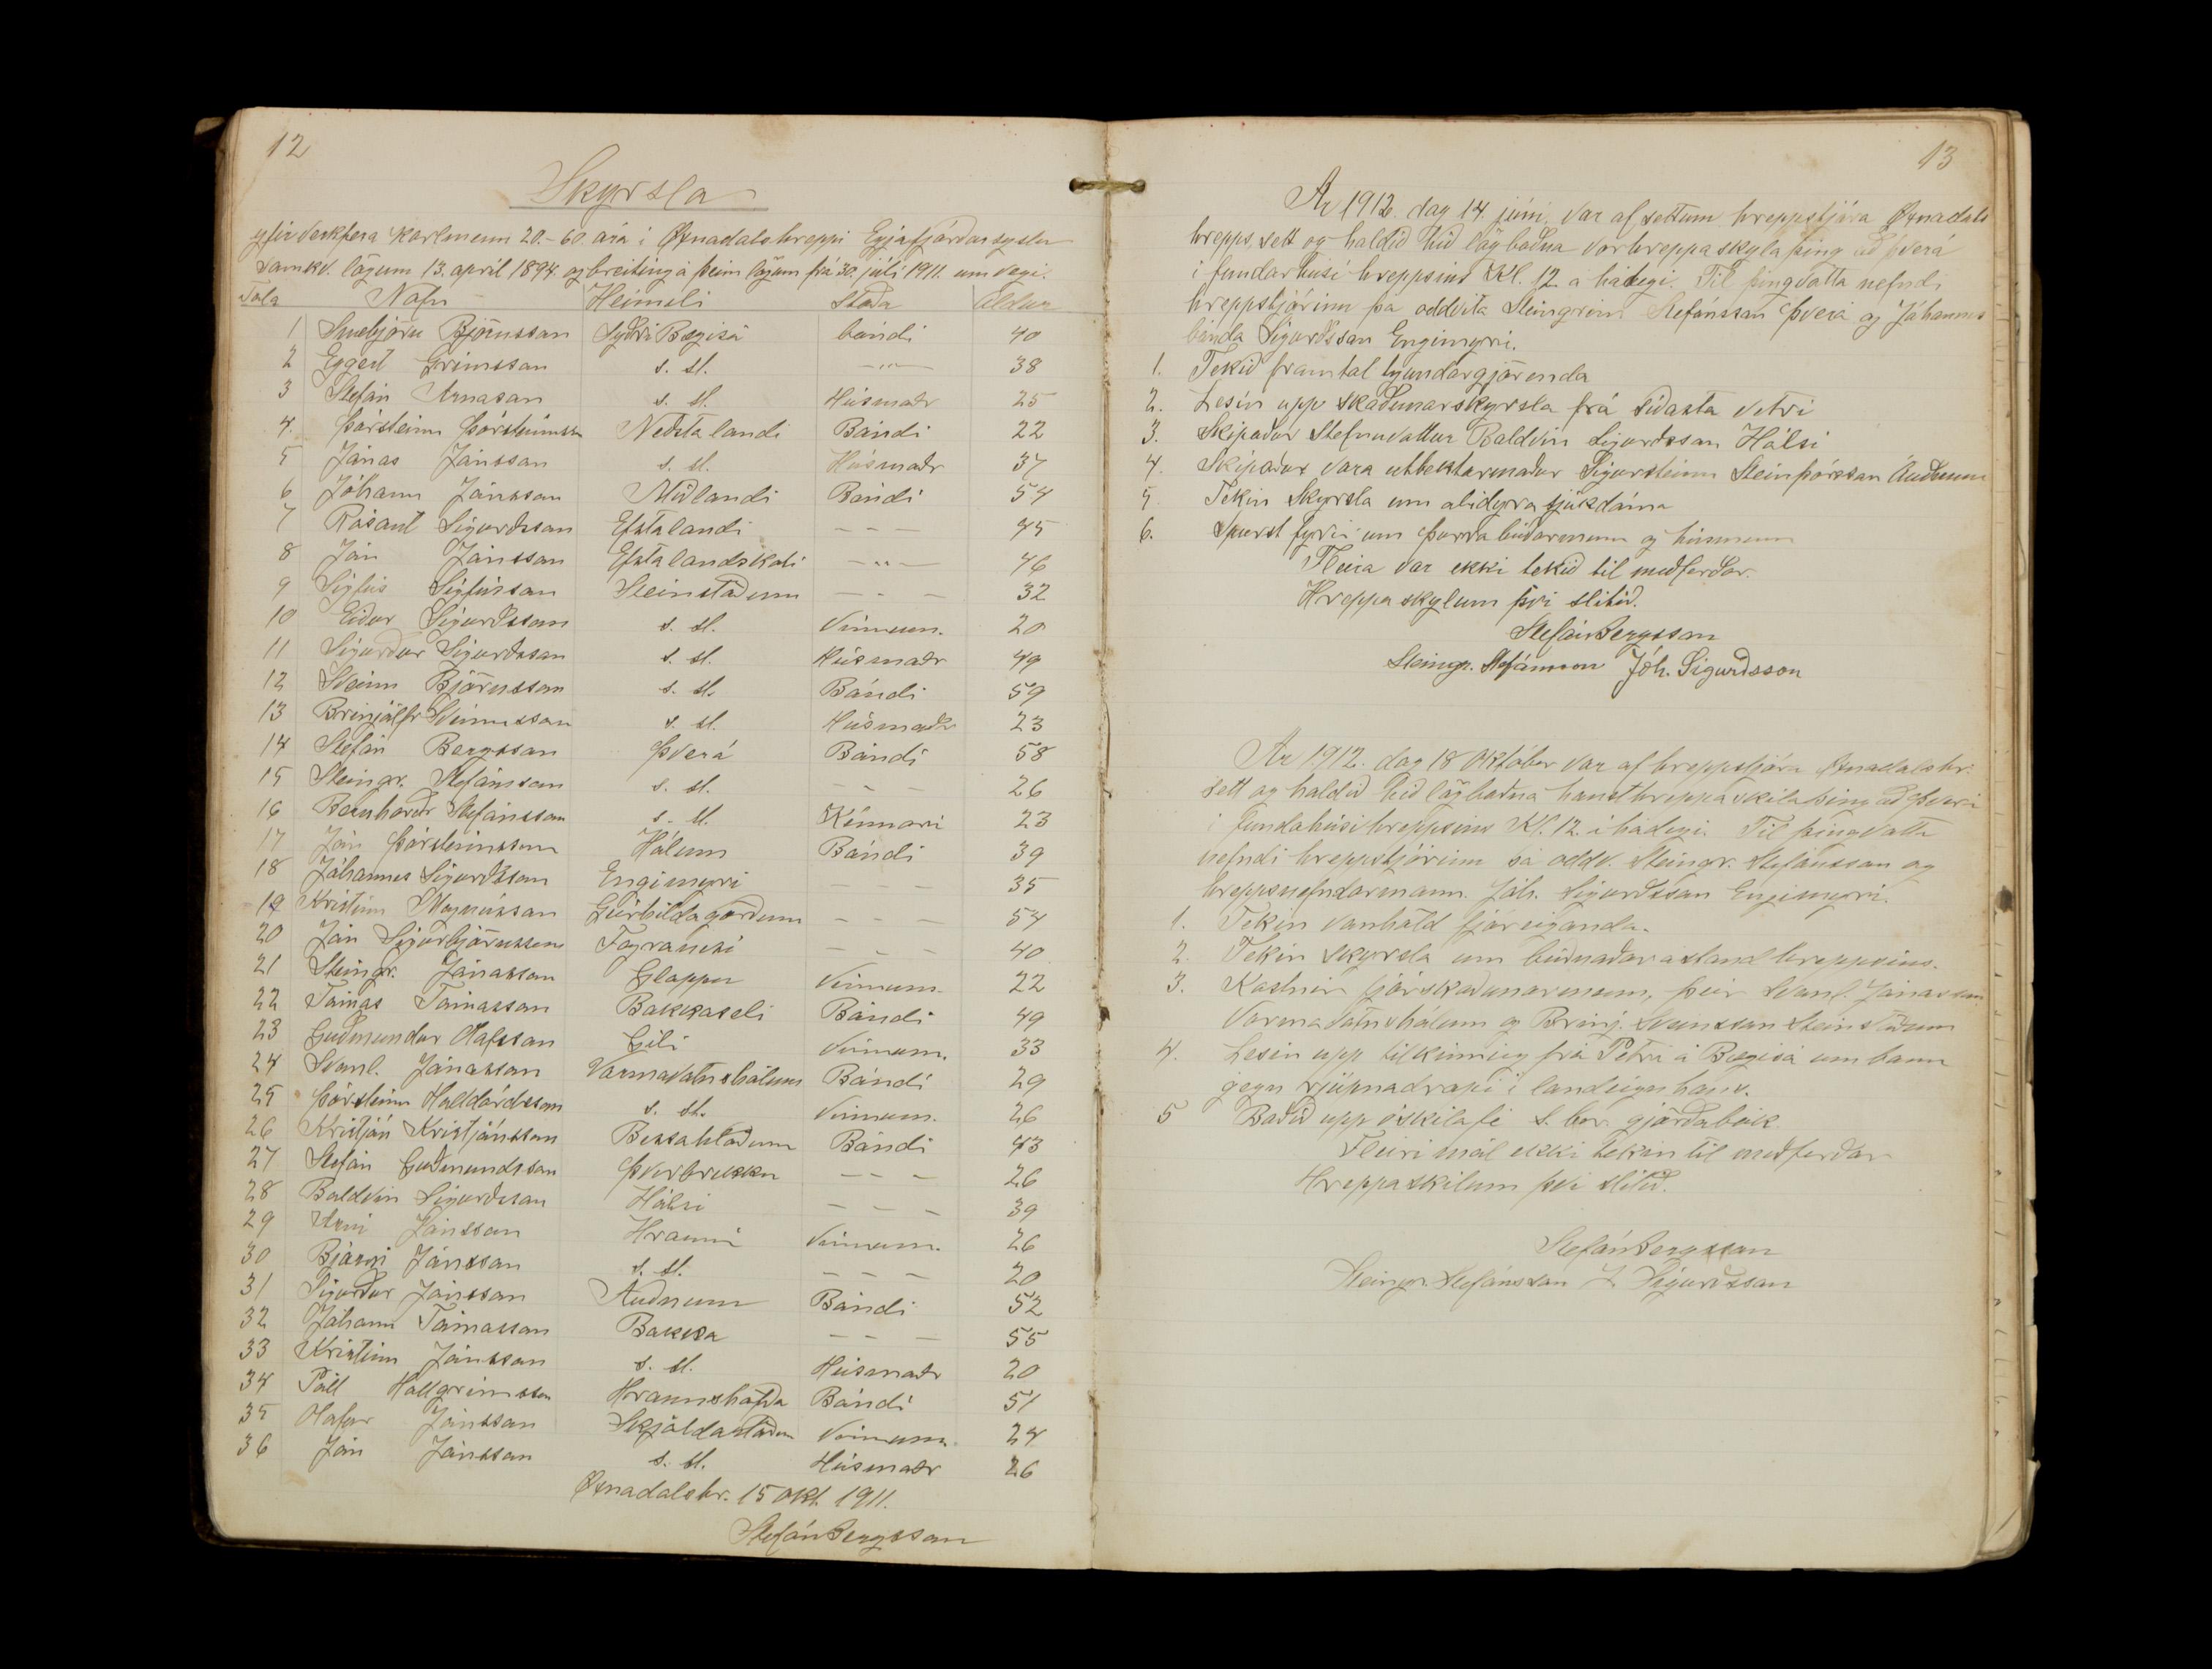 12
Skyrsla
yfir verkfæra karlmenn 20.-60. ára í Øxnadalshreppi Eyjafjarðarsyslu
samkv. lögum 13. apríl 1894. og breiting á þeim lögum frá 30. júlí 1911. um vegi.
Tala Nafn Heimili Staða Aldur
1 Snæbjörn Björnsson Syðri Bægisá bóndi 40
2 Eggert Grímsson s. st. —"— 38
3 Stefán Arnason s. st. Húsmaðr 25
4. Þórsteinn Þórsteinsson Neðstalandi Bóndi 22
5 Jónas Jónsson s. st. Húsmaðr 37
6 Jóhann Jónsson Miðlandi Bóndi 54
7 Rósant Sigurðsson Efstalandi — — — 45
8 Jón Jónsson Efstalandskoti —"— 46
9 Sigfús Sigfússon Steinstöðum — - — 32
10 Eiður Sigurðsson s. st. Vinnum. 20
11 Sigurður Sigurðsson s. st. Húsmaðr 49
12 Sveinn Björnsson s. st. Bóndi 59
13 Brinjólfr Sveinsson s. st. Húsmaðr 23
14 Stefán Bergsson Þverá Bóndi 58
15 Steingr. Stefánsson s. st. — - — 26
16 Bernharðr Stefánsson s. st. Kénnari 23
17 Jón Þórsteinsson Hólum Bóndi 39
18 Jóhannes Sigurðsson Engimyri — — — 35
19 Kristinn Magnússon Geirhildagörðum — — — 54
20 Jón Sigurbjörnsson Fagranesi — — — 40
21 Steingr. Jónasson Gloppu Vinnum. 22
22 Tómas Tómasson Bakkaseli Bóndi 49
23 Guðmundur Olafsson Gili Vinnum. 33
24 Svanl. Jónasson Varmavatnshólum Bóndi 29
25 Þórsteinn Halldórdsson s. st. Vinnum. 26
26 Kristján Kristjánsson Bessahlöðum Bóndi 43
27 Stefán Guðmundsson Þverbrekku — — — 26
28 Baldvin Sigurðsson Hálsi — — — 39
29 Arni Jónsson Hrauni Vinnum. 26
30 Bjarni Jónsson s. st. — — — 20
31 Sigurður Jónsson Auðnum Bóndi 52
32 Jóhann Tómasson Bakka — — — 55
33 Kristinn Jónsson s. st. Húsmaðr 20
34 Páll Hallgrímsson Hraunshöfða Bóndi 51
35 Olafur Jónsson Skjaldastöðum Vinnum. 24
36 Jón Jónsson s. st. Húsmaðr 26
Øxnadalshr. 15 okt. 1911.
Stefán Bergsson
13
Ar 1912. dag 14. júní. var af settum hreppstjóra Øxnadals
hrepps, sett og haldið hið lögboðna vorhreppaskylaþing að Þverá
í fundarhúsi hreppsins Kl. 12 á hádegi. Til þingvotta nefndi
hreppstjórinn þá oddvita Steingrím Stefánsson Þverá og Jóhannes
bónda Sigurðsson Engimyri.
1. Tekið framtal tyundargjörenda
2. Lesin upp skoðunarskyrsla frá síðasta vetri
3. Skipaður Stefnuvottur Baldvin Sigurðsson Hálsi
4. Skipaður vara uttektarmaður Sigursteinn Steinþórsson Auðnum
5. Tekin Skyrsla um alidyra sjúkdóma
6. Spurst fyrir um þurrabúðarmenn og húsmenn
Fleira var ekki tekið til meðferðar.
Hreppaskylum því slitið.
Stefán Bergsson
Steingr. Stefánsson Jóh. Sigurðsson
Ar 1912. dag 18 október var af hreppstjóra Øxnadalshr.
sett og haldið hið lögboðna hausthreppaskilaþing að Þverá
í fundahúsi hreppsins Kl. 12. á hádegi. Til þingvotta
nefndi hreppstjórinn þá oddv. Steingr. Stefánsson og
hreppsnefndarmann. Jóh. Sigurðsson Engimyri.
1. Tekin vanhöld fjáreiganda.
2. Tekin skyrsla um búnaðarástand hreppsins.
3. Kosnir fjárskoðunarmenn, þeir Svanl. Jónasson
Varmavatnshólum og Brinj. Sveinsson Steinstöðum
4. Lesin upp tilkinning frá Petri á Bægisá um bann
gegn rjúpnadrapi í landeign hans.
5 Boðið upp óskilafé s. ber. gjörðabók.
Fleiri mál ekki tekin til meðferðar
Hreppaskilum því slitið.
Stefán Bergsson
Steingr. Stefánsson J. Sigurðsson